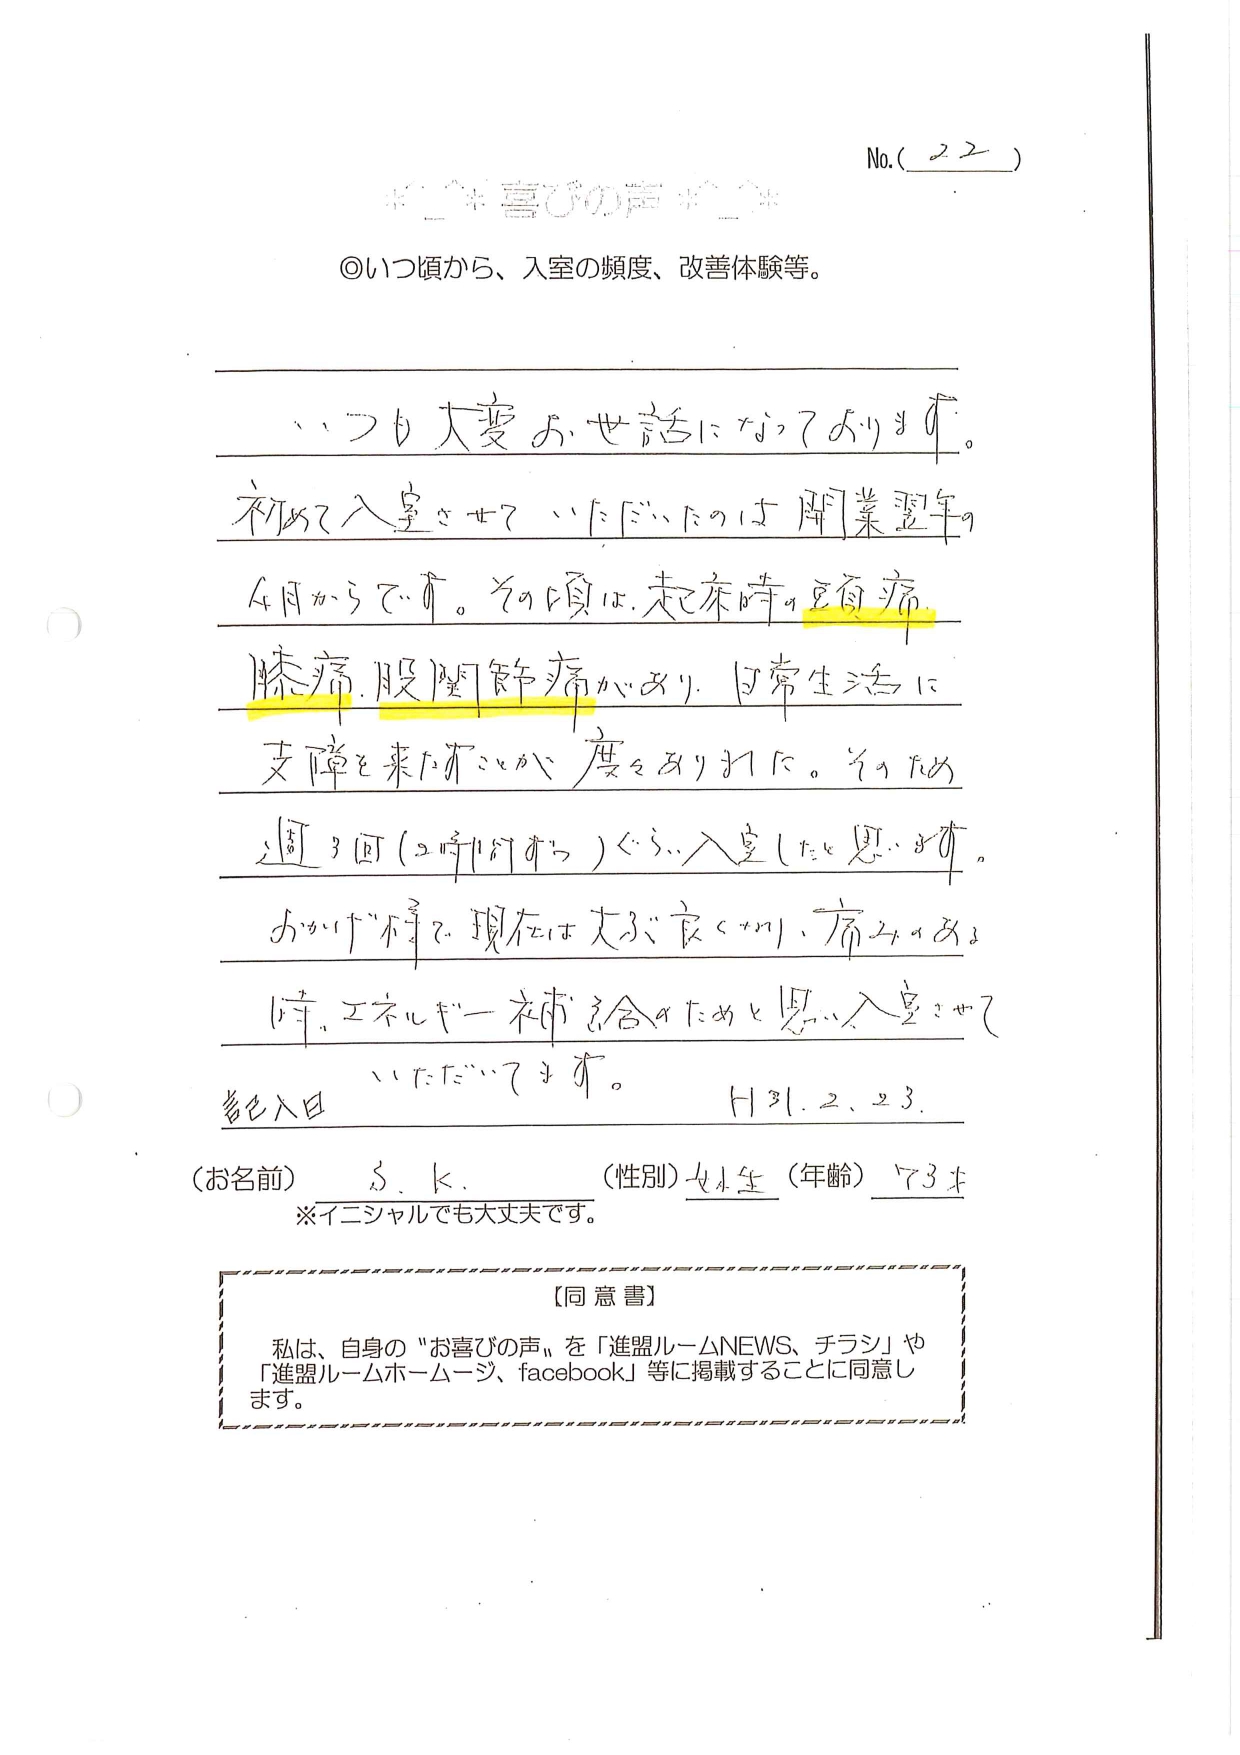 No.( 22 )
*^_^* 喜びの声 *^_^*
◎いつ頃から、入室の頻度、改善体験等。
いつも大変お世話になっております。
初めて入室させていただいたのは開業翌年の
4月からです。その頃は、起床時の頭痛、
膝痛、股関節痛があり、日常生活に
支障を来たすことが度々ありました。そのため
週3回(2時間ずつ)ぐらい入室したと思います。
おかげ様で現在は大ぶ良くなり、痛みのある
時、エネルギー補給のためと思い入室させて
いただいてます。
記入日 H31.2.23.
(お名前) S.K. (性別) 女性 (年齢) 73才
※イニシャルでも大丈夫です。
【同意書】
私は、自身の〝お喜びの声〟を「進盟ルームNEWS、チラシ」や
「進盟ルームホームージ、facebook」等に掲載することに同意し
ます。